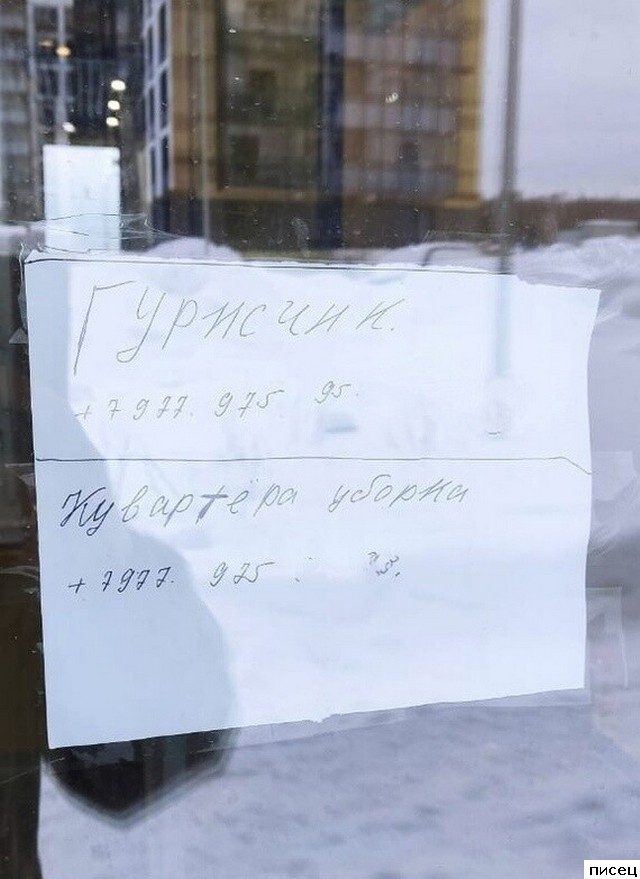 Гурисчик.
+7977. 975 95.
Кувартёра уборка
+7977. 975
писец